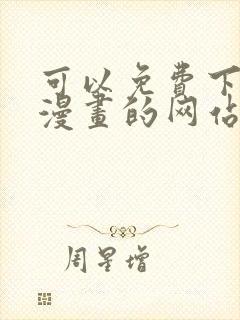 可以免费下
漫畫的网佔
周星增